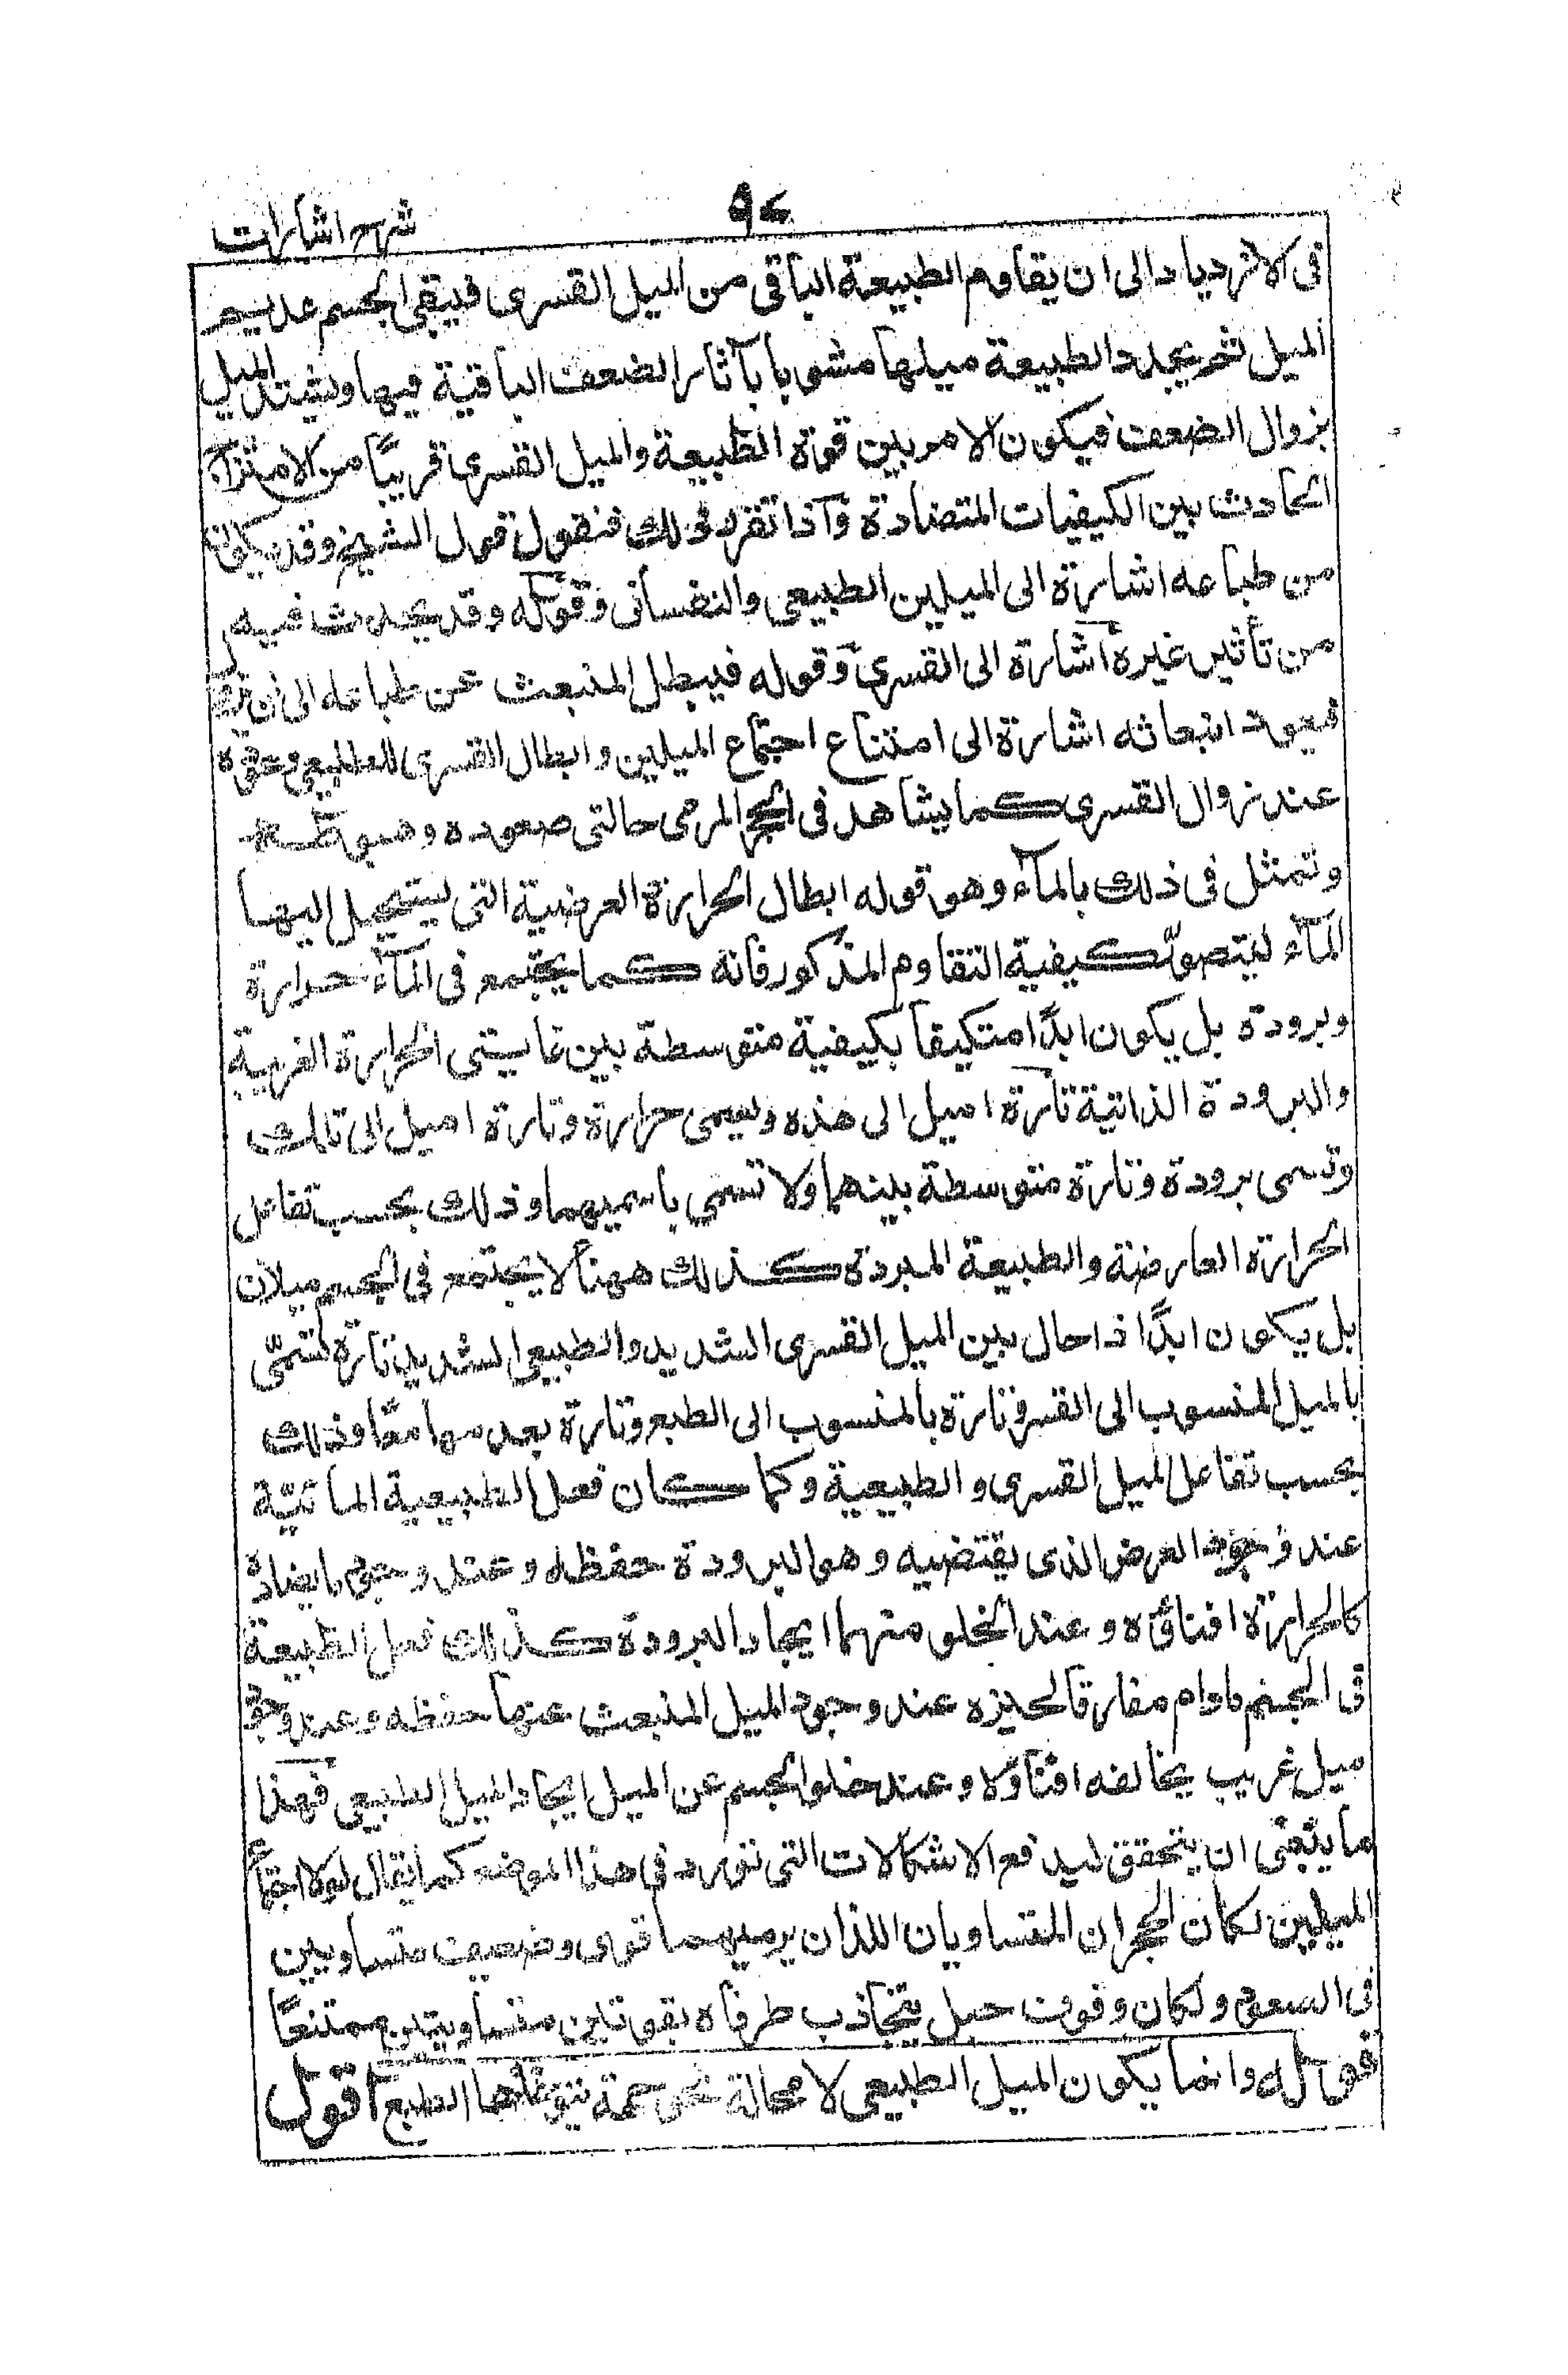 شرح اشارات
٩٢
فى الازدياد الى ان يقاوم الطبيعة الباقى من الميل القسرى فيبقى الجسم عديم
الميل ثم يجدد الطبيعة ميلها مشوبا بآثار الضعف الباقية فيها ويشتد الميل
بزوال الضعف فيكون الامر بين قوة الطبيعة والميل القسرى قريبًا من الامتزاج
الحادث بين الكيفيات المتضادة وآذا تقرر ذلك فنقول قول الشيخ وقد يكون
من طباعه اشارة الى الميلين الطبيعى والنفسانى وقوله وقد يحدث فيه
من تأثير غيره اشارة الى القسرى وقوله فيبطل المنبعث عن طباعه الى ان يزول
فيعود انبعاثه اشارة الى امتناع اجتماع الميلين وابطال القسرى للطبيعى وعوده
عند زوال القسرى كما يشاهد فى الحجر المرمى حالتى صعوده وهبوطه
وتمثل فى ذلك بالمآء وهو قوله ابطال الحرارة العرضية التى يستحيل اليها
المآء ليتصوّر كيفية التقاوم المذكور فانه كما يجتمع فى المآء حرارة
وبرودة بل يكون ابدًا متكيفا بكيفية متوسطة بين غايتى الحرارة الغريبة
والبرودة الذاتية تارة اميل الى هذه وتسمى حرارة وتارة اميل الى تلك
وتسمى برودة وتارة متوسطة بينهما ولا تسمى باسميهما وذلك بحسب تفاعل
الحرارة العارضة والطبيعة المبردة كذلك ههنا لا يجتمع فى الجسم ميلان
بل يكون ابدًا ذا حال بين الميل القسرى الشديد والطبيعى الشديد تارة تسمّى
بالميل المنسوب الى القسر وتارة بالمنسوب الى الطبع وتارة بعدمهما معًا وذلك
بحسب تفاعل الميل القسرى والطبيعية وكما كان فعل الطبيعية المائيّة
عند وجود العرض الذى يقتضيه وهو البرودة حفظه وعند وجود ما يضاده
كالحرارة افنائه وعند الخلو منهما ايجاد البرودة كذلك فعل الطبيعة
فى الجسم مادام مفارقا لحيزه عند وجود الميل المنبعث عنها حفظه وعند وجود
ميل غريب يخالفه افناؤه وعند خلو الجسم عن الميل ايجاد الميل الطبيعى فهذا
ما ينبغى ان يتحقق ليدفع الاشكالات التى تورد فى هذا الموضع كما يقال لولا اجتماع
الميلين لكان الحجران المتساويان اللذان يرميهما قوى وضعيف متساويين
فى الصعود ولكان وقوف حبل يتجاذب طرفاه بقوتين متساويتين ممتنعًا
قوله وانما يكون الميل الطبيعى لا محالة نحو جهة يتوخاها الطبع اقول